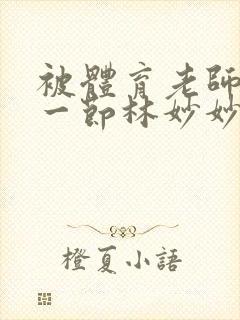 被體育老師
一節林妙妙
橙夏小語